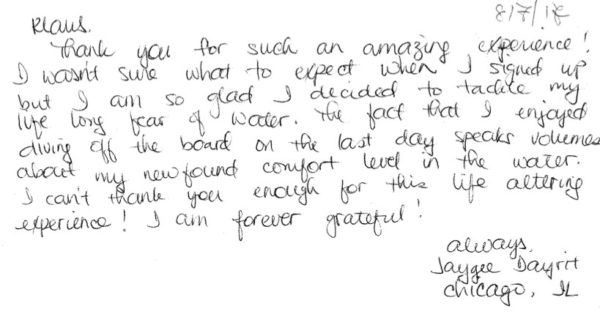 8/7/18
Klaus.
Thank you for such an amazing experience!
I wasn't sure what to expect when I signed up
but I am so glad I decided to tackle my
life long fear of water. The fact that I enjoyed
diving off the board on the last day speaks volumes
about my newfound comfort level in the water.
I can't thank you enough for this life altering
experience! I am forever grateful!
always,
Jaygee Dayrit
Chicago, IL